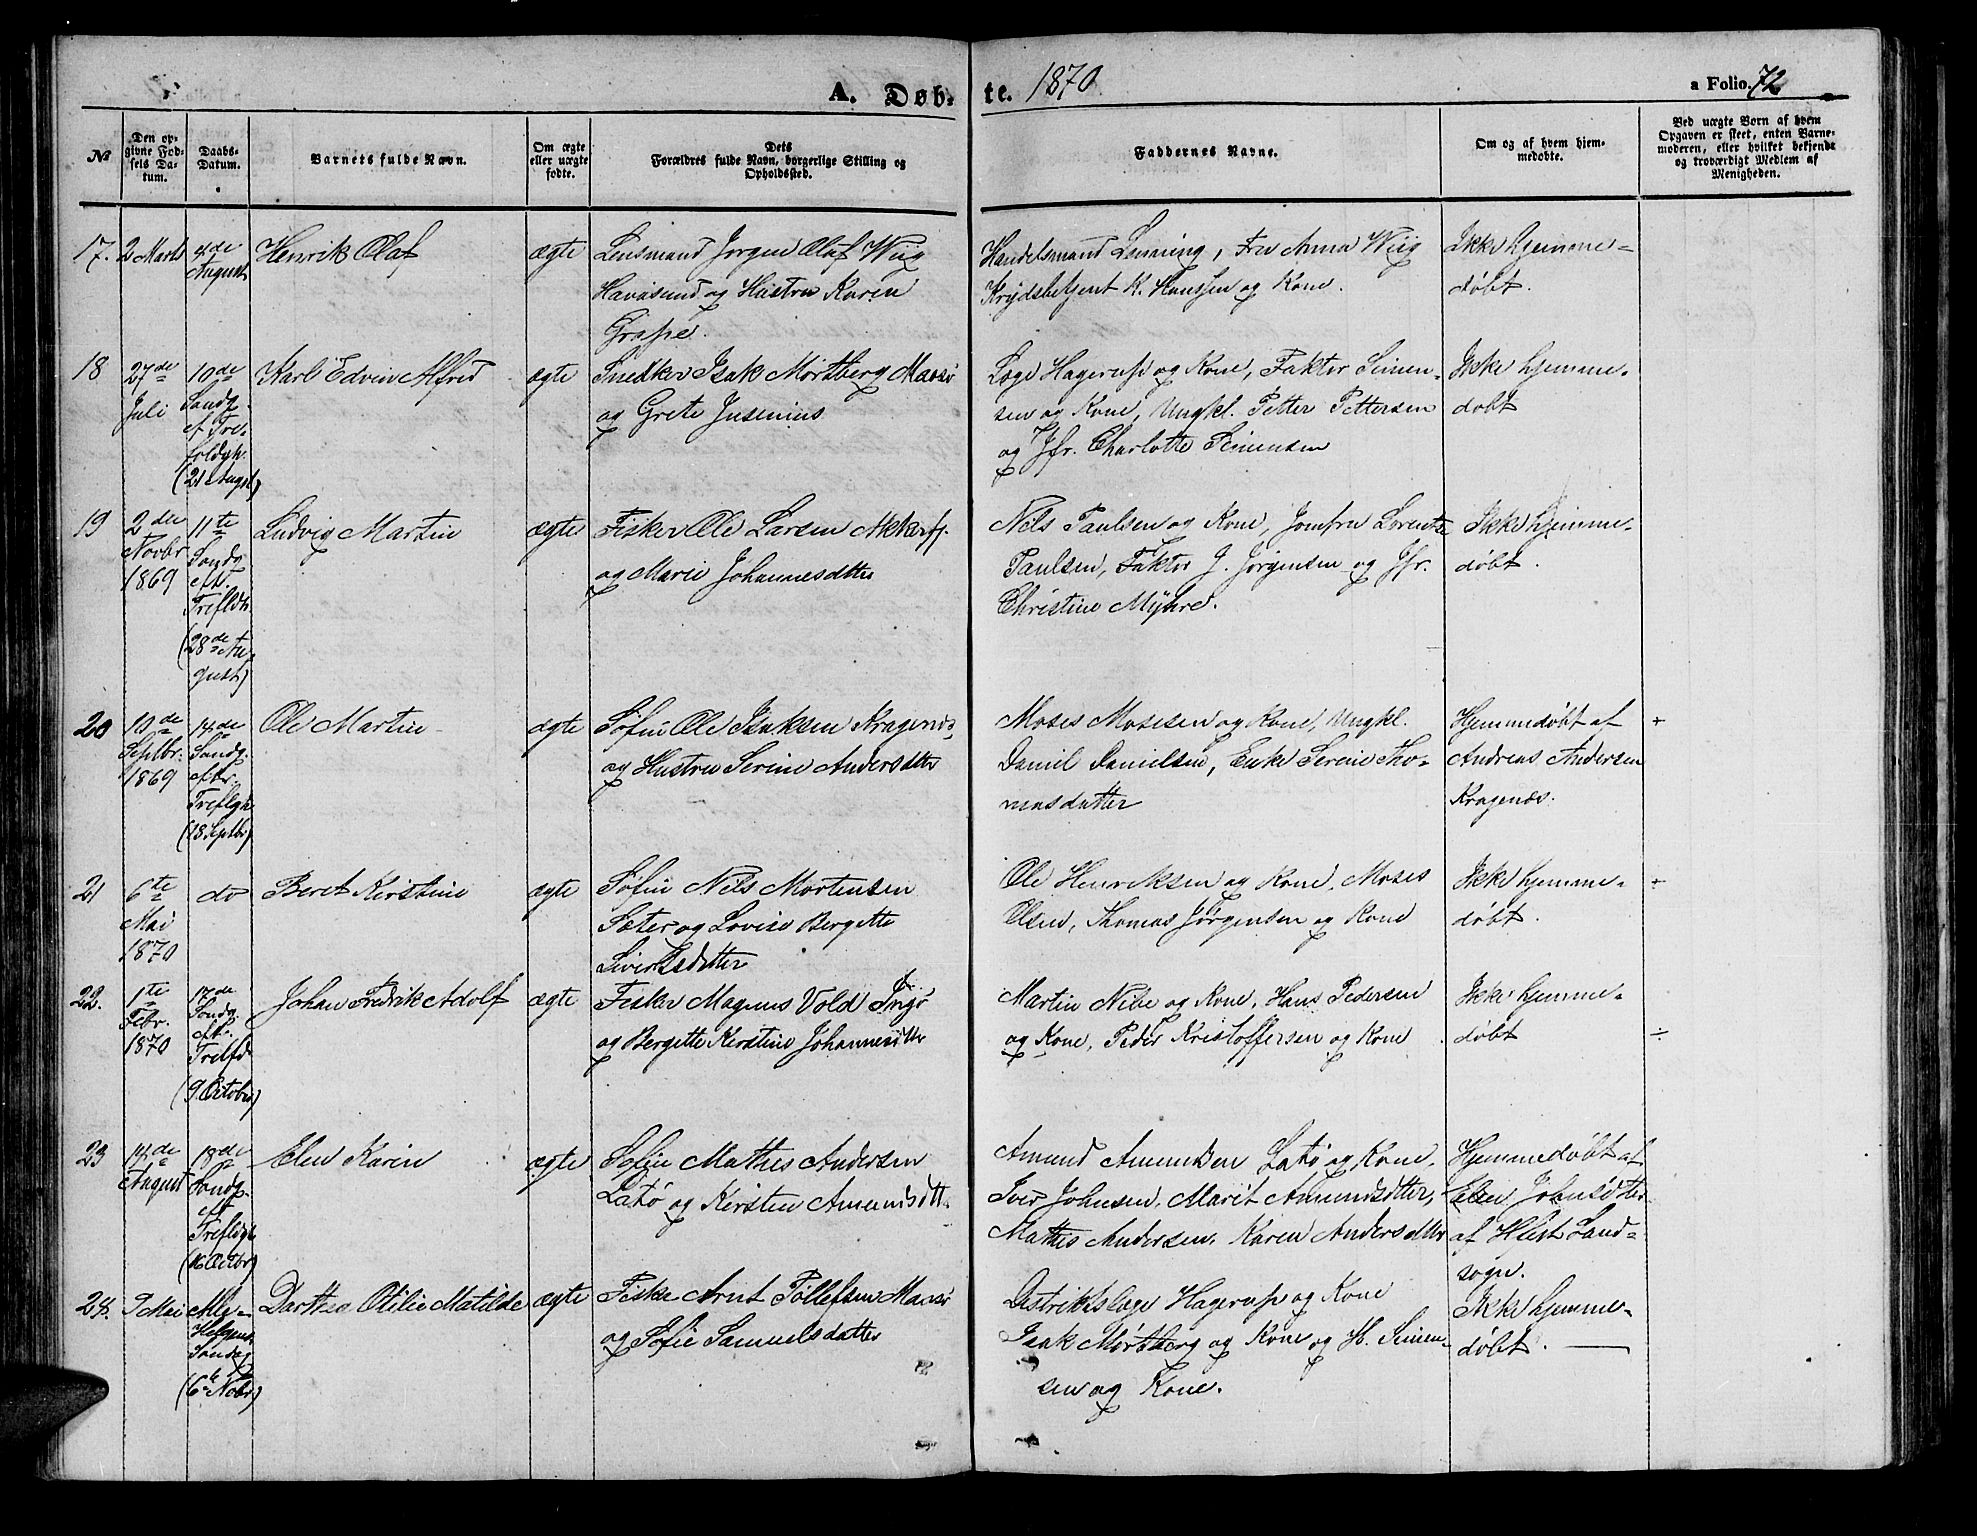 A. Døb- te. 1870 a Folio. 72
No
Den op-
givne Fød-
sels Da-
tum.
Daabs-
Datum.
Barnets fulde Navn.
Om ægte
eller uægte
fødte.
Dets
Forældres fulde Navn, borgerlige Stilling og
Opholdssted.
Faddernes Navne.
Om og af hvem hjem-
medøbte.
Ved uægte Børn af hvem
Opgaven er skeet, enten Barne-
moderen, eller hvilket bekjendt
og troværdigt Medlem af
Menigheden.
17.
2 Marts
4de
August
Henrik Olaf
ægte
Lensmand Jørgen Olaf Wiig
Havøsund og Hustru Karen
Grape.
Handelsmand Lønning, Fru Anna Wiig
Krydsbetjent K. Hanssen og Kone.
Ikke hjemme-
døbt.
18
27de
Juli
10de
Søndg.
ef. Tre-
foldgh.
(21 Augst)
Karl Edvin Alfred
ægte
Snedker Isak Mørtberg Maasø
og Grete Jusenius
Læge Hagerup og Kone, Faktor Simen-
sen og Kone, Ungkl. Petter Pettersen
og Jfr. Charlotte Simensen
Ikke hjemme-
døbt
19
2den
Novbr
1869
11te
Søndg
eft.
Trefldh.
(28de Au-
gust)
Ludvig Martin
ægte
Fisker Ole Larsen Akkarfj.
og Marie Johannesdtter
Nils Paulsen og Kone, Jomfru Lorentze
Paulsen, Faktor J. Jørgensen og Jfr.
Christine Myhre.
Ikke hjemme-
døbt.
20
10de
Septbr.
1869
14de
Søndg.
eftr.
Treflgh
(18 Septbr)
Ole Martin
ægte
Søfin Ole Isaksen Kragenæs,
og Hustru Serine Andersdtter
Moses Mosesen og Kone, Ungkl.
Daniel Danielsen, Enke Serine Tho-
masdatter
Hjemmedøbt af
Andreas Andersen
Kragenæs.
+
21
6te
Mai
1870
do
Beret Kirstine
ægte
Søfin Nils Mortensen
Sæter og Lovise Bergette
Sivertsdtter
Ole Henriksen og Kone, Moses
Olsen, Thomas Jørgensen og Kone
Ikke hjemme-
døbt.
÷
22.
1te
Febr.
1870
17de
Søndg.
eft.
Trelfd
(9 Octobr)
Johan Fredrik Adolf
ægte
Fisker Magnus Vold Ingø
og Bergette Kirstine Johannesdtter
Martin Nibe og Kone, Hans Pedersen
og Kone, Peder Kristoffersen og Kone
Ikke hjemme-
døbt
÷
23
14de
August
18de
Søndg.
eft
Trefldgh
(16 Octbr)
Elen Karin
ægte
Søfin Mathis Andersen
Latø og Kirsten Amundsdtt.
Amund Amundsen Latø og Kone,
Iver Johnsen, Marit Amundsdtter,
Mathis Andersen, Karen Andersdtter
Hjemmedøbt af
Elen Johnsdtter
af Hfest Land-
sogn.
24.
7 Mai
Alle-
Helgens
Søndag
(6te Nobr)
Darthea Otilie Matilde
ægte
Fisker Arnt Tollefsen Maasø
og Sofie Samuelsdatter
Distriktslæge Hagerup og Kone
Isak Mørtberg og Kone og H. Simen-
sen og Kone.
Ikke hjemme-
døbt.